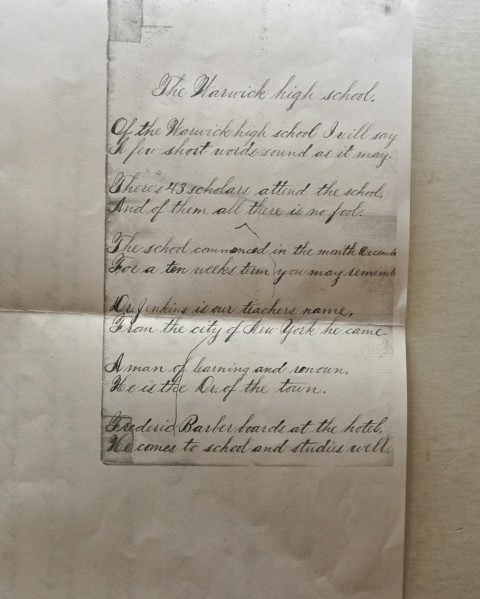 The Warwick high school.
Of the Warwick high school I will say
A few short words sound as it may.
There's 43 scholars attend the school,
And of them all there is no fool.
The school commenced in the month Decembe
For a ten weeks term you may rememb
Dr Jenkins is our teachers name,
From the city of New York he came.
A man of learning and renoun,
He is the Dr. of the town.
Frederic Barber boards at the hotel,
He comes to school and studies well.